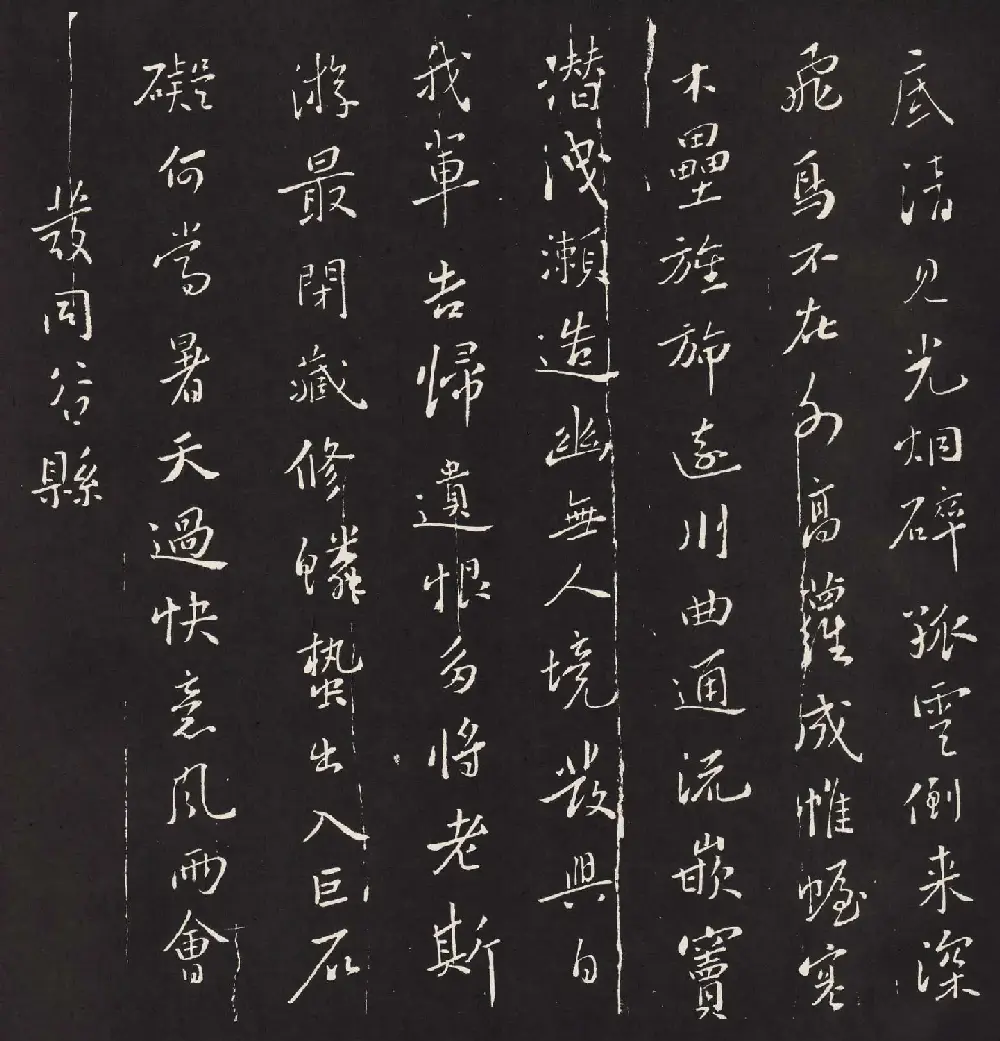 底清見光烱碎孤雲倒来深
飛鳥不在外高蘿成帷幄寒
木壘旌旆遠川曲通流嵌竇
潜洩瀨造幽無人境發興自
我軰告歸遺恨多將老斯
游最閉藏修鱗蟄出入巨石
礙何當暑天過快意風雨會
發同谷縣